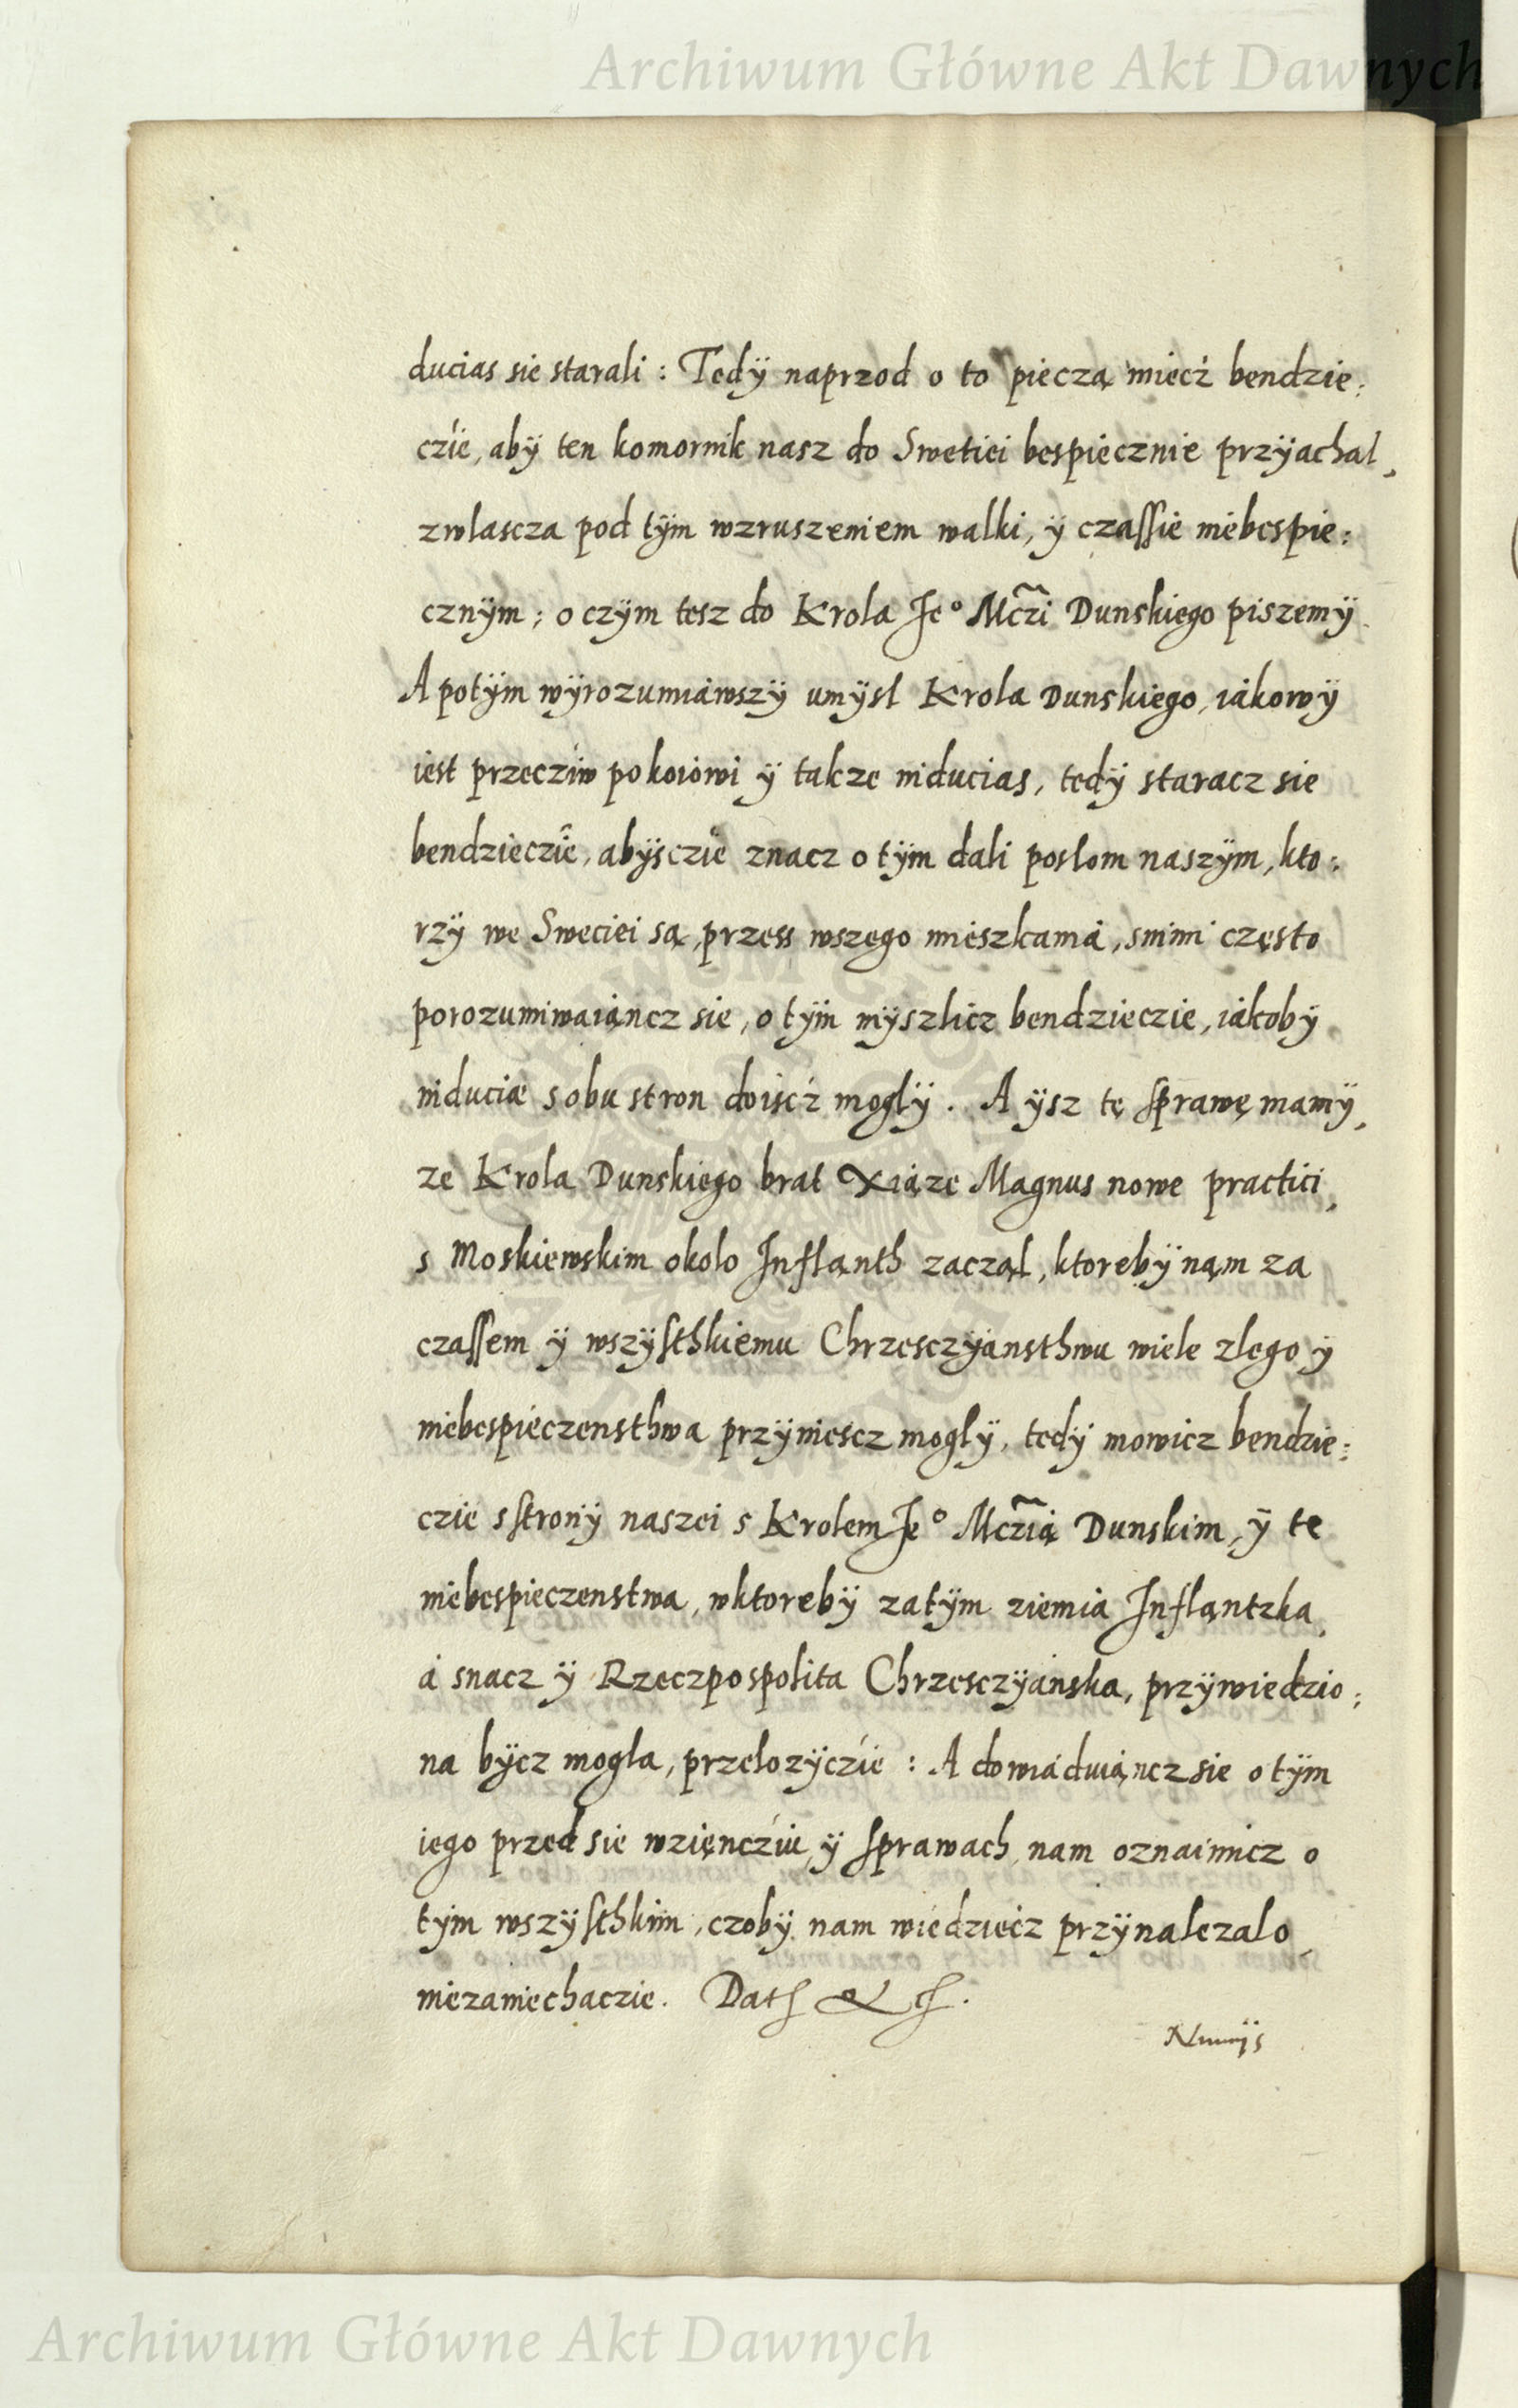 Archiwum Główne Akt Dawnych
ducias sie starali : Tedÿ naprzod o to pieczą miecż bendzie:
cżie, abÿ ten komornik nasz do Swetiei bespiecznie przÿachal,
zwlascza pod tÿm wzruszeniem walki, ÿ czaſſie niebespie:
cznÿm; o czÿm tesz do Krola Je° Mczi Dunskiego piszemÿ.
A potÿm wÿrozumiawszÿ umÿsl Krola Dunskiego, iakowÿ
iest przecziw pokoiowi ÿ takze niducias, tedÿ staracz sie
bendzieczie, abÿsczie znacz o tÿm dali poslom naszÿm, kto:
rzÿ we Sweciei są, przess wszego mieszkania, snimi często
porozumiwaiąncz sie, o tÿm mÿszlicz bendzieczie, iakobÿ
niduciæ s obu stron doiscż moglÿ. A ÿsz tę ſprawę mamÿ,
ze Krola Dunskiego brat Xiąze Magnus nowe practici,
s Moskiewskim okolo Inflanth zacząl, ktorebÿ nąm za
czaſſem ÿ wszÿſthkiemu Chrzesczÿansthwu wiele zlego ÿ
niebespieczensthwa przÿniescz moglÿ, tedÿ mowicz bendzie:
czie sſtronÿ naszei s Krolem Je° Mczią Dunskim, ÿ te
niebespieczenstwa, wktorebÿ zatÿm ziemia Inflantzka,
a snacz ÿ Rzeczpospolita Chrzesczÿanska, przÿwiedzio:
na bÿcz mogla, przelozÿczie : A dowiaduiąncz sie o tÿm
iego przedsie wzięncziu, ÿ ſprawach, nam oznaimicz o
tÿm wszÿſthkim, czobÿ nam wiedziecz przÿnalezalo,
niezaniechaczie. Datſ &c.
Archiwum Główne Akt Dawnych